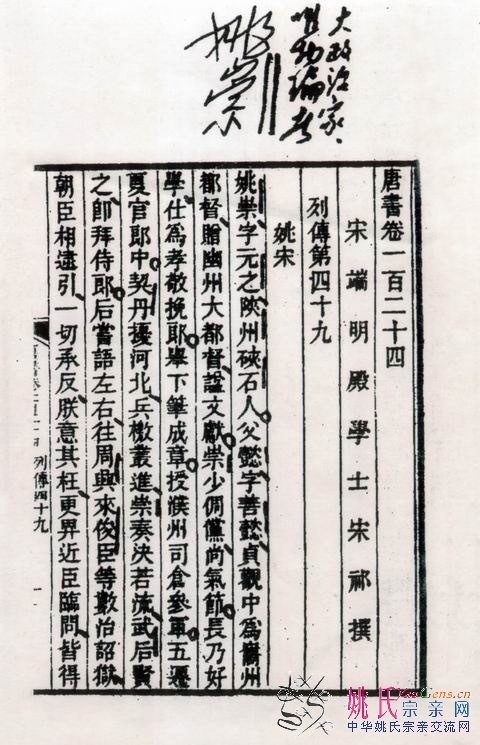 大政治家、
唯物论者
姚崇
唐書卷一百二十四
宋端明殿學士宋祁撰
列傳第四十九
姚宋
姚崇字元之陝州硤石人父懿字善懿貞觀中為巂州
都督贈幽州大都督諡文獻崇少倜儻尚氣節長乃好
學仕為孝敬挽郎舉下筆成章授濮州司倉參軍五遷
夏官郎中契丹擾河北兵檄叢進崇奏決若流武后賢
之即拜侍郎后嘗語左右往周興來俊臣等數治詔獄
朝臣相逮引一切承反朕意其枉更畀近臣臨問皆得
列傳四十九
一
姚氏宗亲网
YaoGens.cn
中华姚氏宗亲交流网